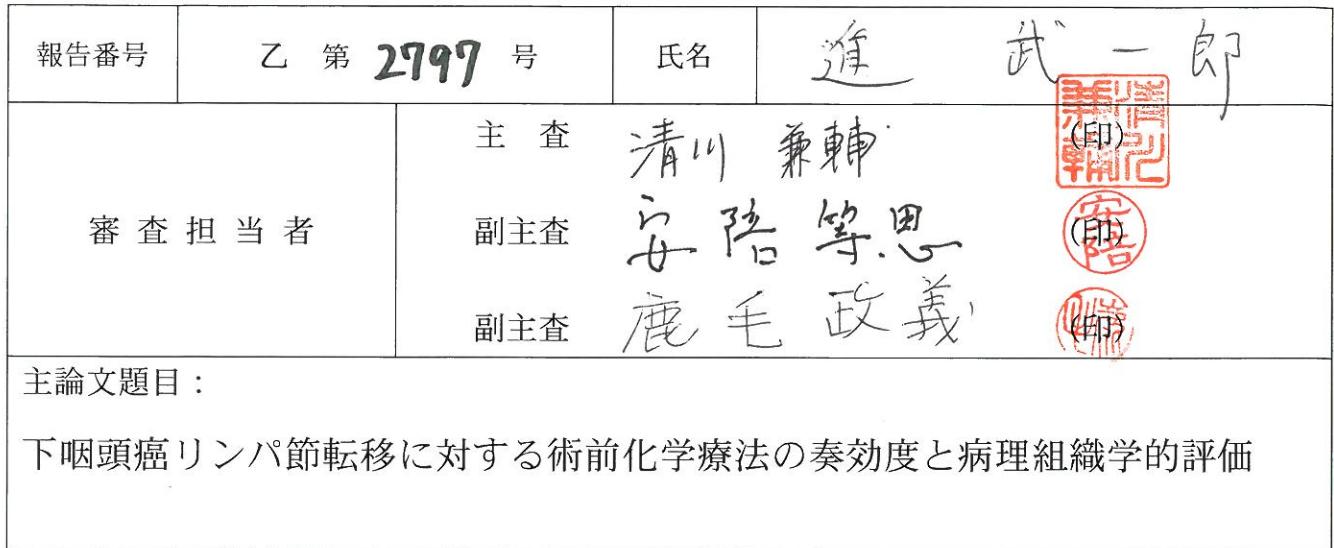 報告番号 乙 第 2797 号 氏名 進 武一郎
主 査 清川 兼輔 (印)
審 査 担 当 者 副主査 安陪等思 (印)
副主査 鹿毛政義 (印)
主論文題目：
下咽頭癌リンパ節転移に対する術前化学療法の奏効度と病理組織学的評価